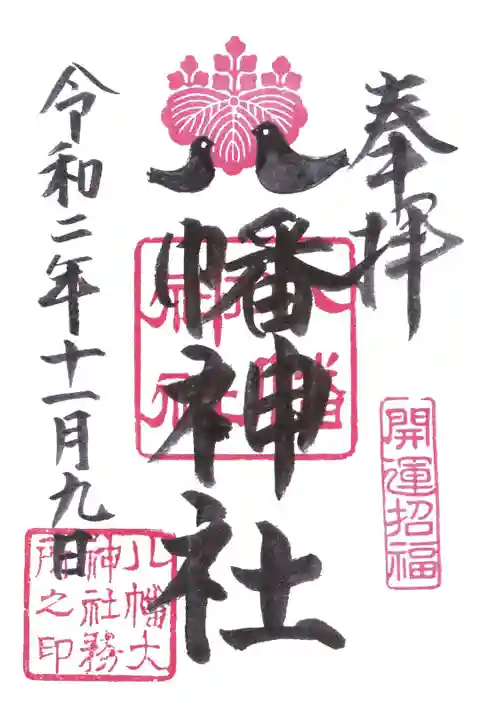 奉拝
幡神社
令和二年十一月九日
八幡神社
開運招福
八幡大
神社務
所之印